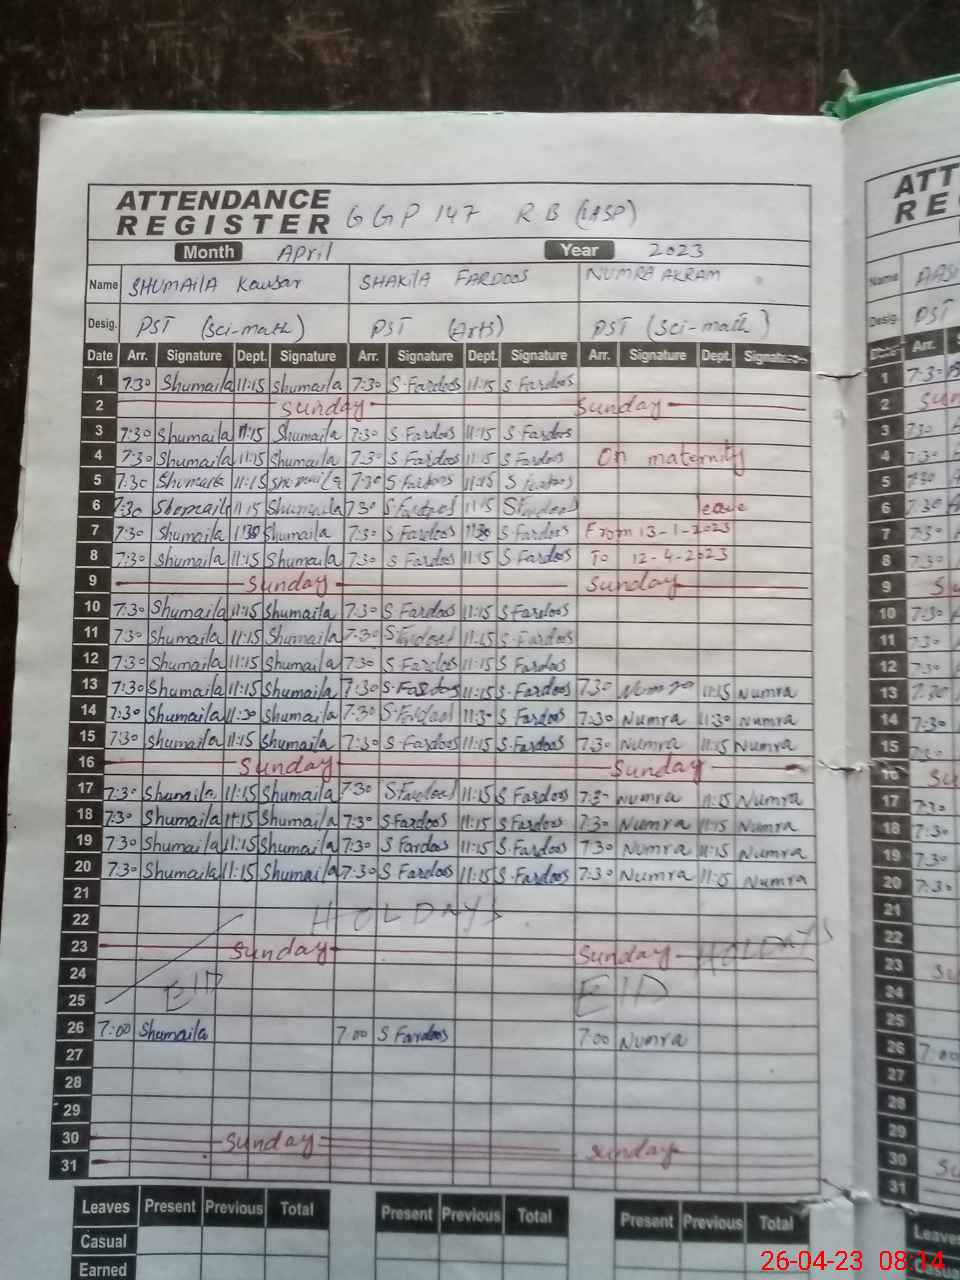 ATTENDANCE
REGISTER GGP 147 RB (IASP)
Month April Year 2023
Name SHUMAILA Kousar SHAKILA FARDOOS NUMRA AKRAM
Desig. PST (Sci-math) PST (Arts) PST (Sci-math)
Date Arr. Signature Dept. Signature Arr. Signature Dept. Signature Arr. Signature Dept. Signature
1 7:30 Shumaila 11:15 Shumaila 7:30 S.Fardoos 11:15 S Fardoos
2 Sunday Sunday
3 7:30 Shumaila 11:15 Shumaila 7:30 S.Fardoos 11:15 S Fardoos
4 7:30 Shumaila 11:15 Shumaila 7:30 S.Fardoos 11:15 S Fardoos On maternity
5 7:30 Shumaila 11:15 Shumaila 7:30 S Fardoos 11:15 S Fardoos
6 7:30 Shumaila 11:15 Shumaila 7:30 S.Fardoos 11:15 S Fardoos leave
7 7:30 Shumaila 11:30 Shumaila 7:30 S Fardoos 11:30 S Fardoos From 13-1-2023
8 7:30 Shumaila 11:15 Shumaila 7:30 S Fardoos 11:15 S Fardoos To 12-4-2023
9 Sunday Sunday
10 7:30 Shumaila 11:15 Shumaila 7:30 S.Fardoos 11:15 S Fardoos
11 7:30 Shumaila 11:15 Shumaila 7:30 S Fardoos 11:15 S.Fardoos
12 7:30 Shumaila 11:15 Shumaila 7:30 S.Fardoos 11:15 S Fardoos
13 7:30 Shumaila 11:15 Shumaila 7:30 S.Fardoos 11:15 S.Fardoos 7:30 Numra 11:15 Numra
14 7:30 Shumaila 11:30 Shumaila 7:30 S.Fardoos 11:30 S Fardoos 7:30 Numra 11:30 Numra
15 7:30 Shumaila 11:15 Shumaila 7:30 S Fardoos 11:15 S Fardoos 7:30 Numra 11:15 Numra
16 Sunday Sunday
17 7:30 Shumaila 11:15 Shumaila 7:30 S Fardoos 11:15 S Fardoos 7:30 Numra 11:15 Numra
18 7:30 Shumaila 11:15 Shumaila 7:30 S Fardoos 11:15 S Fardoos 7:30 Numra 11:15 Numra
19 7:30 Shumaila 11:15 Shumaila 7:30 S Fardos 11:15 S.Fardoos 7:30 Numra 11:15 Numra
20 7:30 Shumaila 11:15 Shumaila 7:30 S Fardoos 11:15 S.Fardoos 7:30 Numra 11:15 Numra
21
22 HOLDAYS
23 Sunday Sunday HOLDAYS
24 EID EID
25
26 7:00 Shumaila 7:00 S Fardoos 7:00 Numra
27
28
29
30 Sunday Sunday
31
Leaves Present Previous Total Present Previous Total Present Previous Total
Casual
Earned
ATT
RE
Name
Desig.
PST
Arr.
1 7:30
2 Sun
3 7:30
4 7:30
5 7:30
6 7:30
7 7:30
8 7:30
9 Su
10 7:30
11 7:30
12 7:30
13 7:30
14 7:30
15 7:30
16 Su
17 7:30
18 7:30
19 7:30
20 7:30
21
22
23 Su
24
25
26 7:00
27
28
29
30 Su
31
Leaves
Casual
26-04-23 08:14